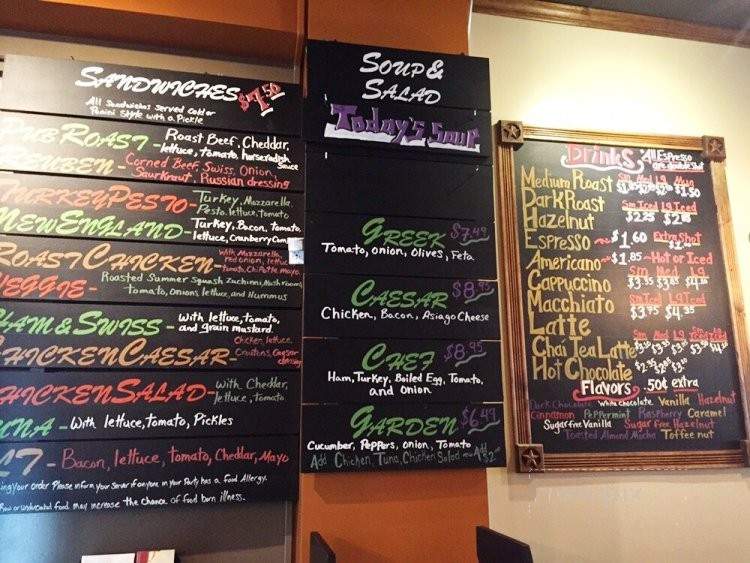 SANDWICHES $7.50
All Sandwiches served cold or
Panini Style with a Pickle
ROAST Roast Beef, Cheddar,
lettuce, tomato, horseradish
Sauce
Corned Beef, Swiss, Onion,
Saurkraut, Russian dressing
PESTO - Turkey, Mozzarella,
Pesto, lettuce, tomato
NEW ENGLAND - Turkey, Bacon, Tomato,
lettuce, Cranberry
ROAST CHICKEN - With Mozzarella,
red onion,
tomato, Chipotle Mayo
VEGGIE - Roasted Summer Squash, Zuchinni, Mushrooms
tomato, onions, lettuce, and Hummus
& SWISS - with lettuce, tomato,
and grain mustard
CHICKEN CAESAR - Chicken, lettuce,
Croutons, Caesar
dressing
SALAD - With Cheddar,
lettuce, tomato
- With lettuce, tomato, Pickles
- Bacon, lettuce, tomato, Cheddar, Mayo
your order Please inform your Server if anyone in your Party has a food Allergy.
Raw or undercooked food may increase the chance of food born illness.
SOUP &
SALAD
Today's Soup
GREEK $7.49
Tomato, onion, Olives, Feta
CAESAR $8.95
Chicken, Bacon, Asiago Cheese
CHEF $8.95
Ham, Turkey, Boiled Egg, Tomato,
and onion
GARDEN $6.49
Cucumber, Peppers, onion, Tomato
Add Chicken, Tuna, Chicken Salad
Drinks * All Espresso
Sm Med Lg Mug
Medium Roast $1.50
Dark Roast Sm Iced Lg Iced
Hazelnut $2.25
Espresso $1.60 Extra Shot
Americano - $1.85 - Hot or Iced
Sm Med Lg
Cappuccino
Macchiato Sm Iced Lg Iced
$3.95 $4.35
Latte
Chai Tea Latte
Hot Chocolate
Flavors .50¢ extra
Dark Chocolate White Chocolate Vanilla Hazelnut
Cinnamon Peppermint Raspberry Caramel
Sugar free Vanilla Sugar free Hazelnut
Toasted Almond Mocha Toffee nut